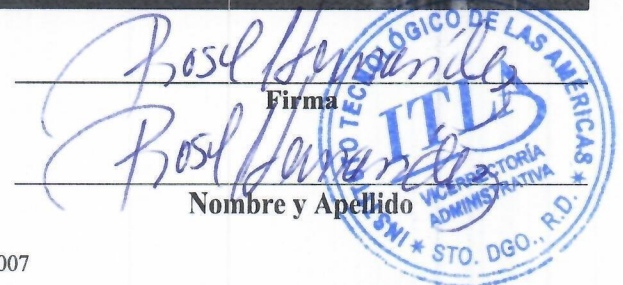 Rosel Hernández
Firma
Rosel Hernández
Nombre y Apellido
INSTITUTO TECNOLÓGICO DE LAS AMÉRICAS
ITLA
VICERRECTORÍA
ADMINISTRATIVA
* STO. DGO., R.D. *
007